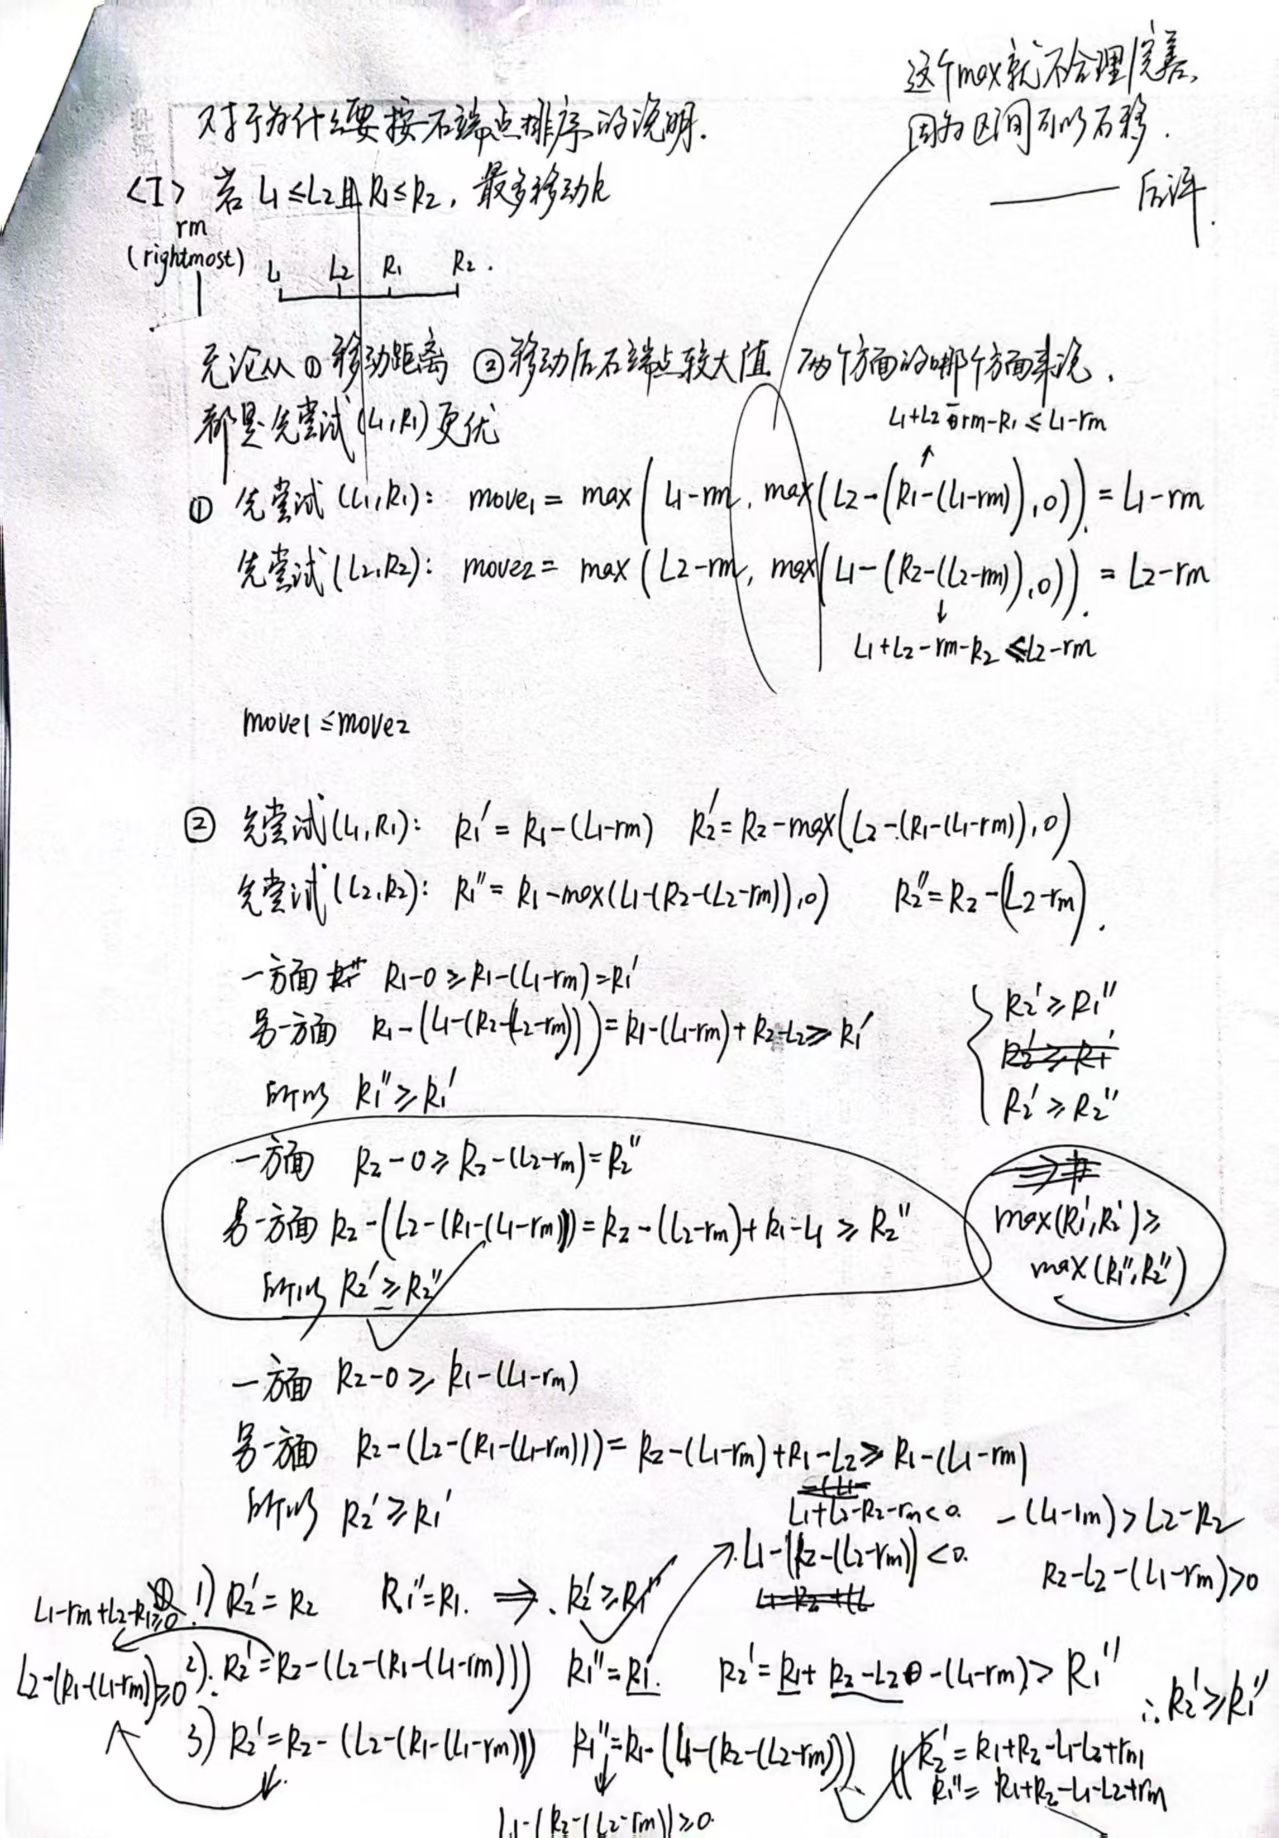 这个max就不合理/完善,
因为区间可以右移.
—— 后评.
对于为什么要按右端点排序的说明.
<I> 若 L1≤L2且R1≤R2, 最多移动k
rm
(rightmost)
L1 L2 R1 R2.
无论从①移动距离 ②移动后右端点较大值 两个方面的哪个方面来说,
都是先尝试(L1,R1)更优
L1+L2-rm-R1≤L1-rm
① 先尝试(L1,R1): move1 = max(L1-rm, max(L2-(R1-(L1-rm)),0)) = L1-rm
先尝试(L2,R2): move2 = max(L2-rm, max(L1-(R2-(L2-rm)),0)) = L2-rm
L1+L2-rm-R2≤L2-rm
move1≤move2
② 先尝试(L1,R1): R1'=R1-(L1-rm) R2'=R2-max(L2-(R1-(L1-rm)),0)
先尝试(L2,R2): R1''=R1-max(L1-(R2-(L2-rm)),0) R2''=R2-(L2-rm).
一方面 R1-0≥R1-(L1-rm)=R1'
另一方面 R1-(L1-(R2-(L2-rm)))=R1-(L1-rm)+R2-L2≥R1'
所以 R1''≥R1'
R2'≥R1''
R2'≥R1'
R2'≥R2''
一方面 R2-0≥R2-(L2-rm)=R2''
另一方面 R2-(L2-(R1-(L1-rm)))=R2-(L2-rm)+R1-L1≥R2''
所以 R2'≥R2''
max(R1',R2')≥
max(R1'',R2'')
一方面 R2-0≥R1-(L1-rm)
另一方面 R2-(L2-(R1-(L1-rm)))=R2-(L1-rm)+R1-L2≥R1-(L1-rm)
所以 R2'≥R1'
L1+L2-R2-rm<0. -(L1-rm)>L2-R2
L1-(R2-(L2-rm))<0. R2-L2-(L1-rm)>0
L1-rm+L2-R1≥0
1) R2'=R2 R1''=R1. ⇒. R2'≥R1''
L2-(R1-(L1-rm))≥0
2). R2'=R2-(L2-(R1-(L1-rm))) R1''=R1. R2'=R1+R2-L2-(L1-rm)>R1''
∴R2'≥R1''
3) R2'=R2-(L2-(R1-(L1-rm))) R1''=R1-(L1-(R2-(L2-rm)))
R2'=R1+R2-L1-L2+rm
R1''=R1+R2-L1-L2+rm
L1-(R2-(L2-rm))≥0.